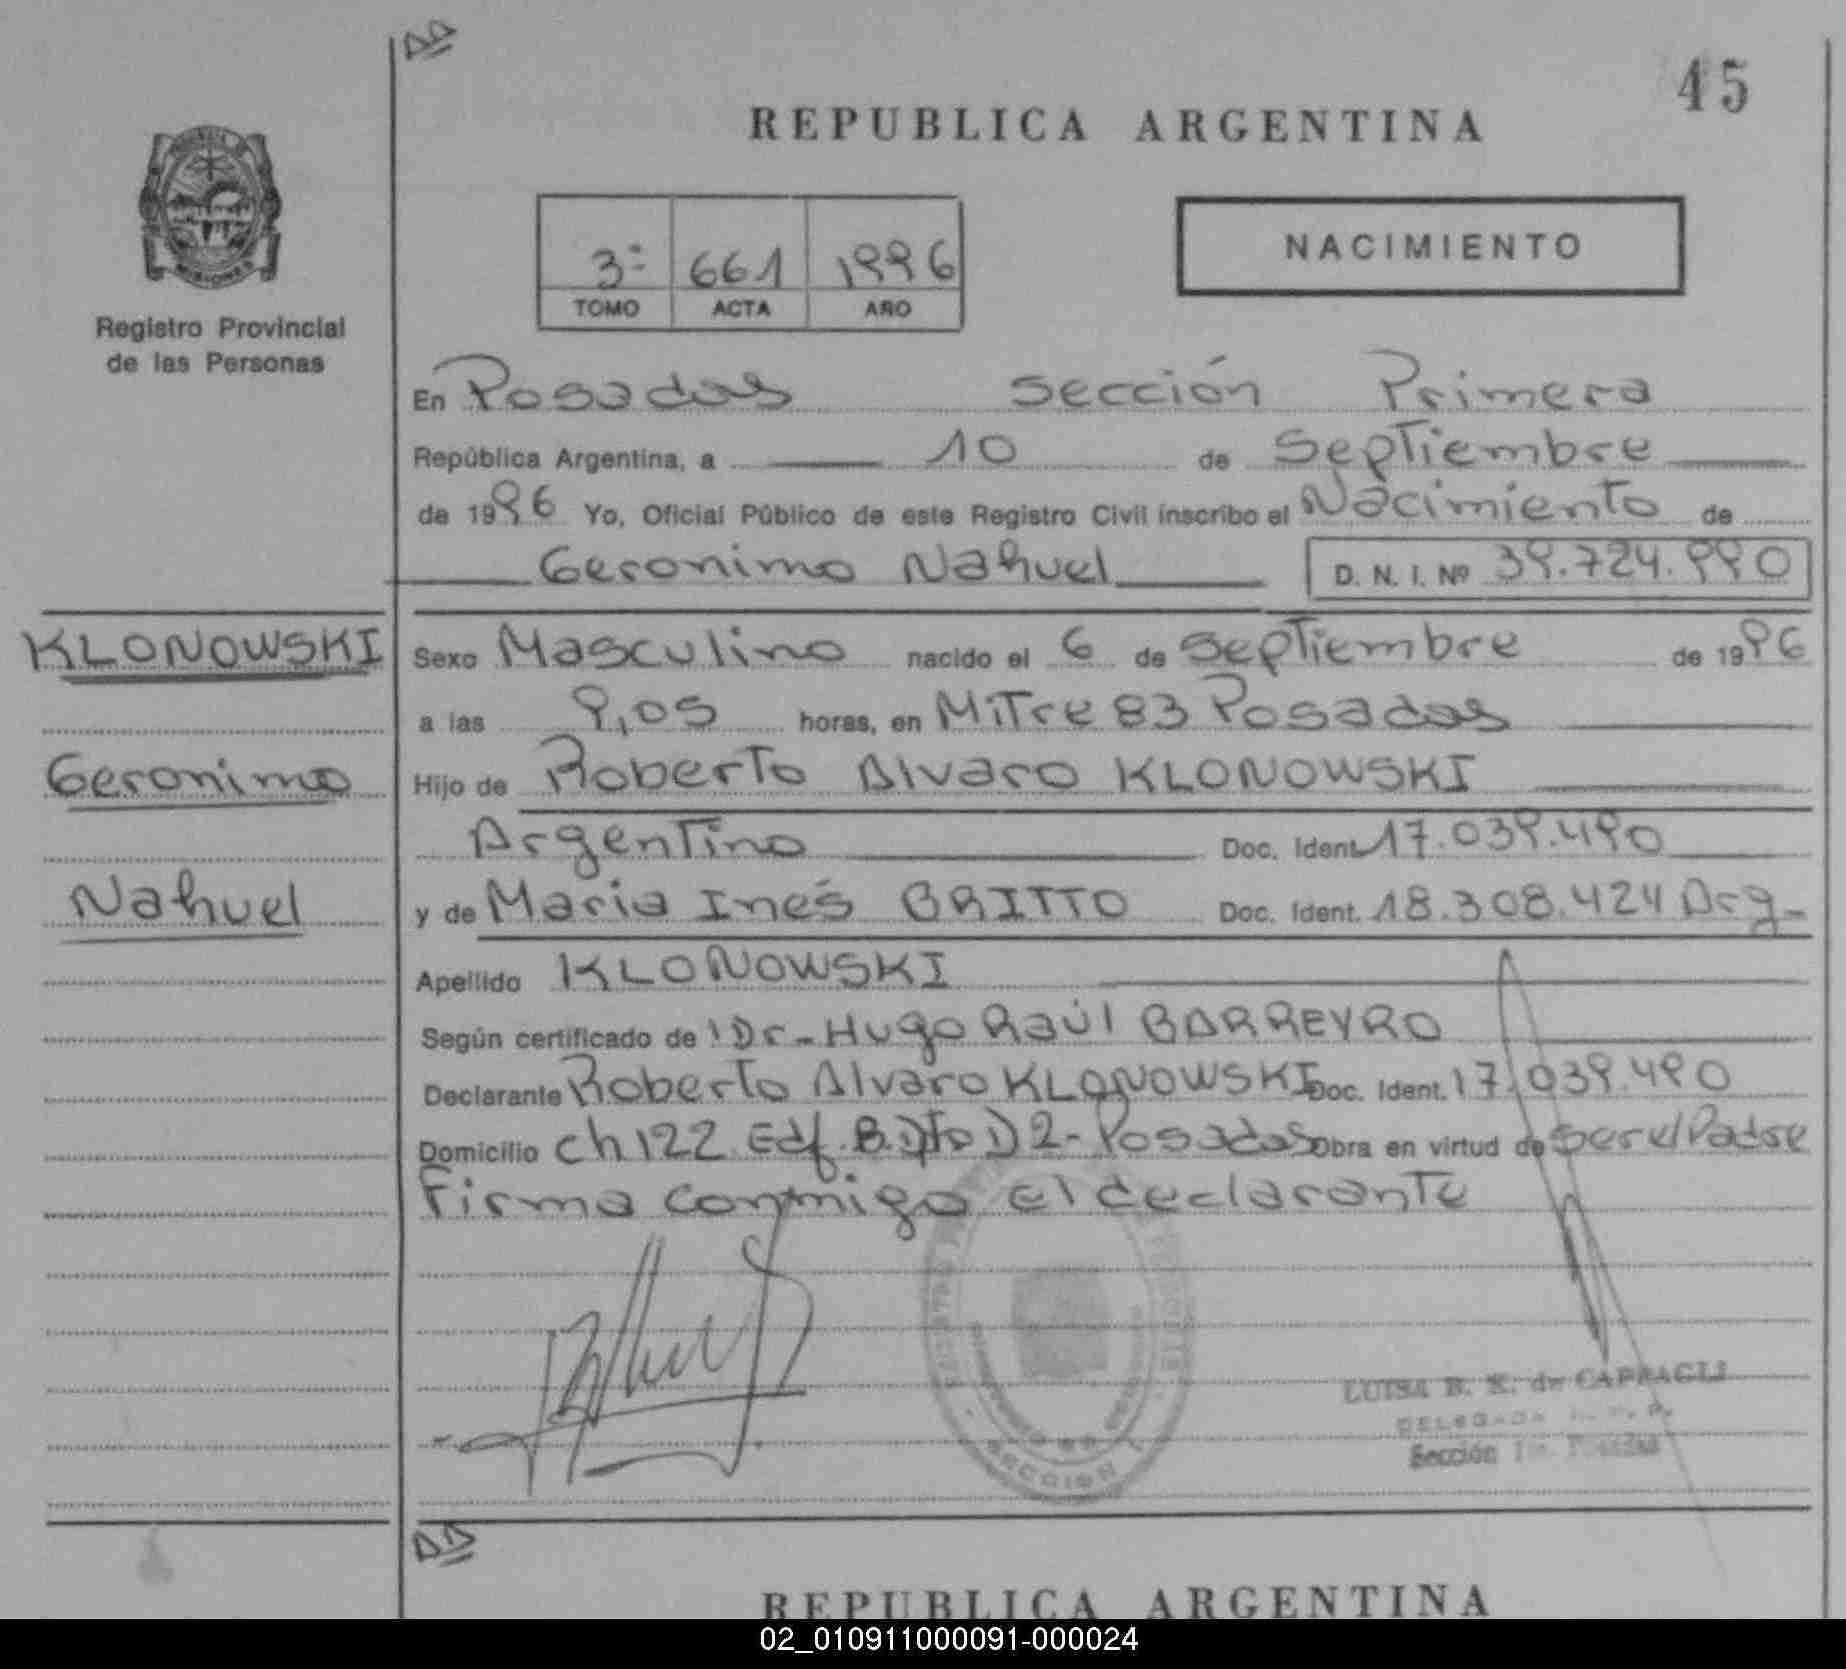 45
REPUBLICA ARGENTINA
MISIONES
Registro Provincial
de las Personas
3º 661 1996
TOMO ACTA AÑO
NACIMIENTO
En Posadas Sección Primera
República Argentina, a 10 de Septiembre
de 1996 Yo, Oficial Público de este Registro Civil inscribo el Nacimiento de
Geronimo Nahuel D. N. I. Nº 39.724.990
KLONOWSKI
Geronimo
Nahuel
Sexo Masculino nacido el 6 de Septiembre de 1996
a las 9,05 horas, en Mitre 83 Posadas
Hijo de Roberto Alvaro KLONOWSKI
Argentino Doc. Ident. 17.039.490
y de Maria Inés BRITTO Doc. Ident. 18.308.424 Arg-
Apellido KLONOWSKI
Según certificado de Dr- Hugo Raúl BARREYRO
Declarante Roberto Alvaro KLONOWSKI Doc. Ident. 17.039.490
Domicilio ch 122 Edf. B. Dto D 2- Posadas Obra en virtud de ser el Padre
Firma conmigo el declarante
SECCION
LUISA B. K. de CAPPAGLI
DELEGADA
Sección
REPUBLICA ARGENTINA
02_010911000091-000024